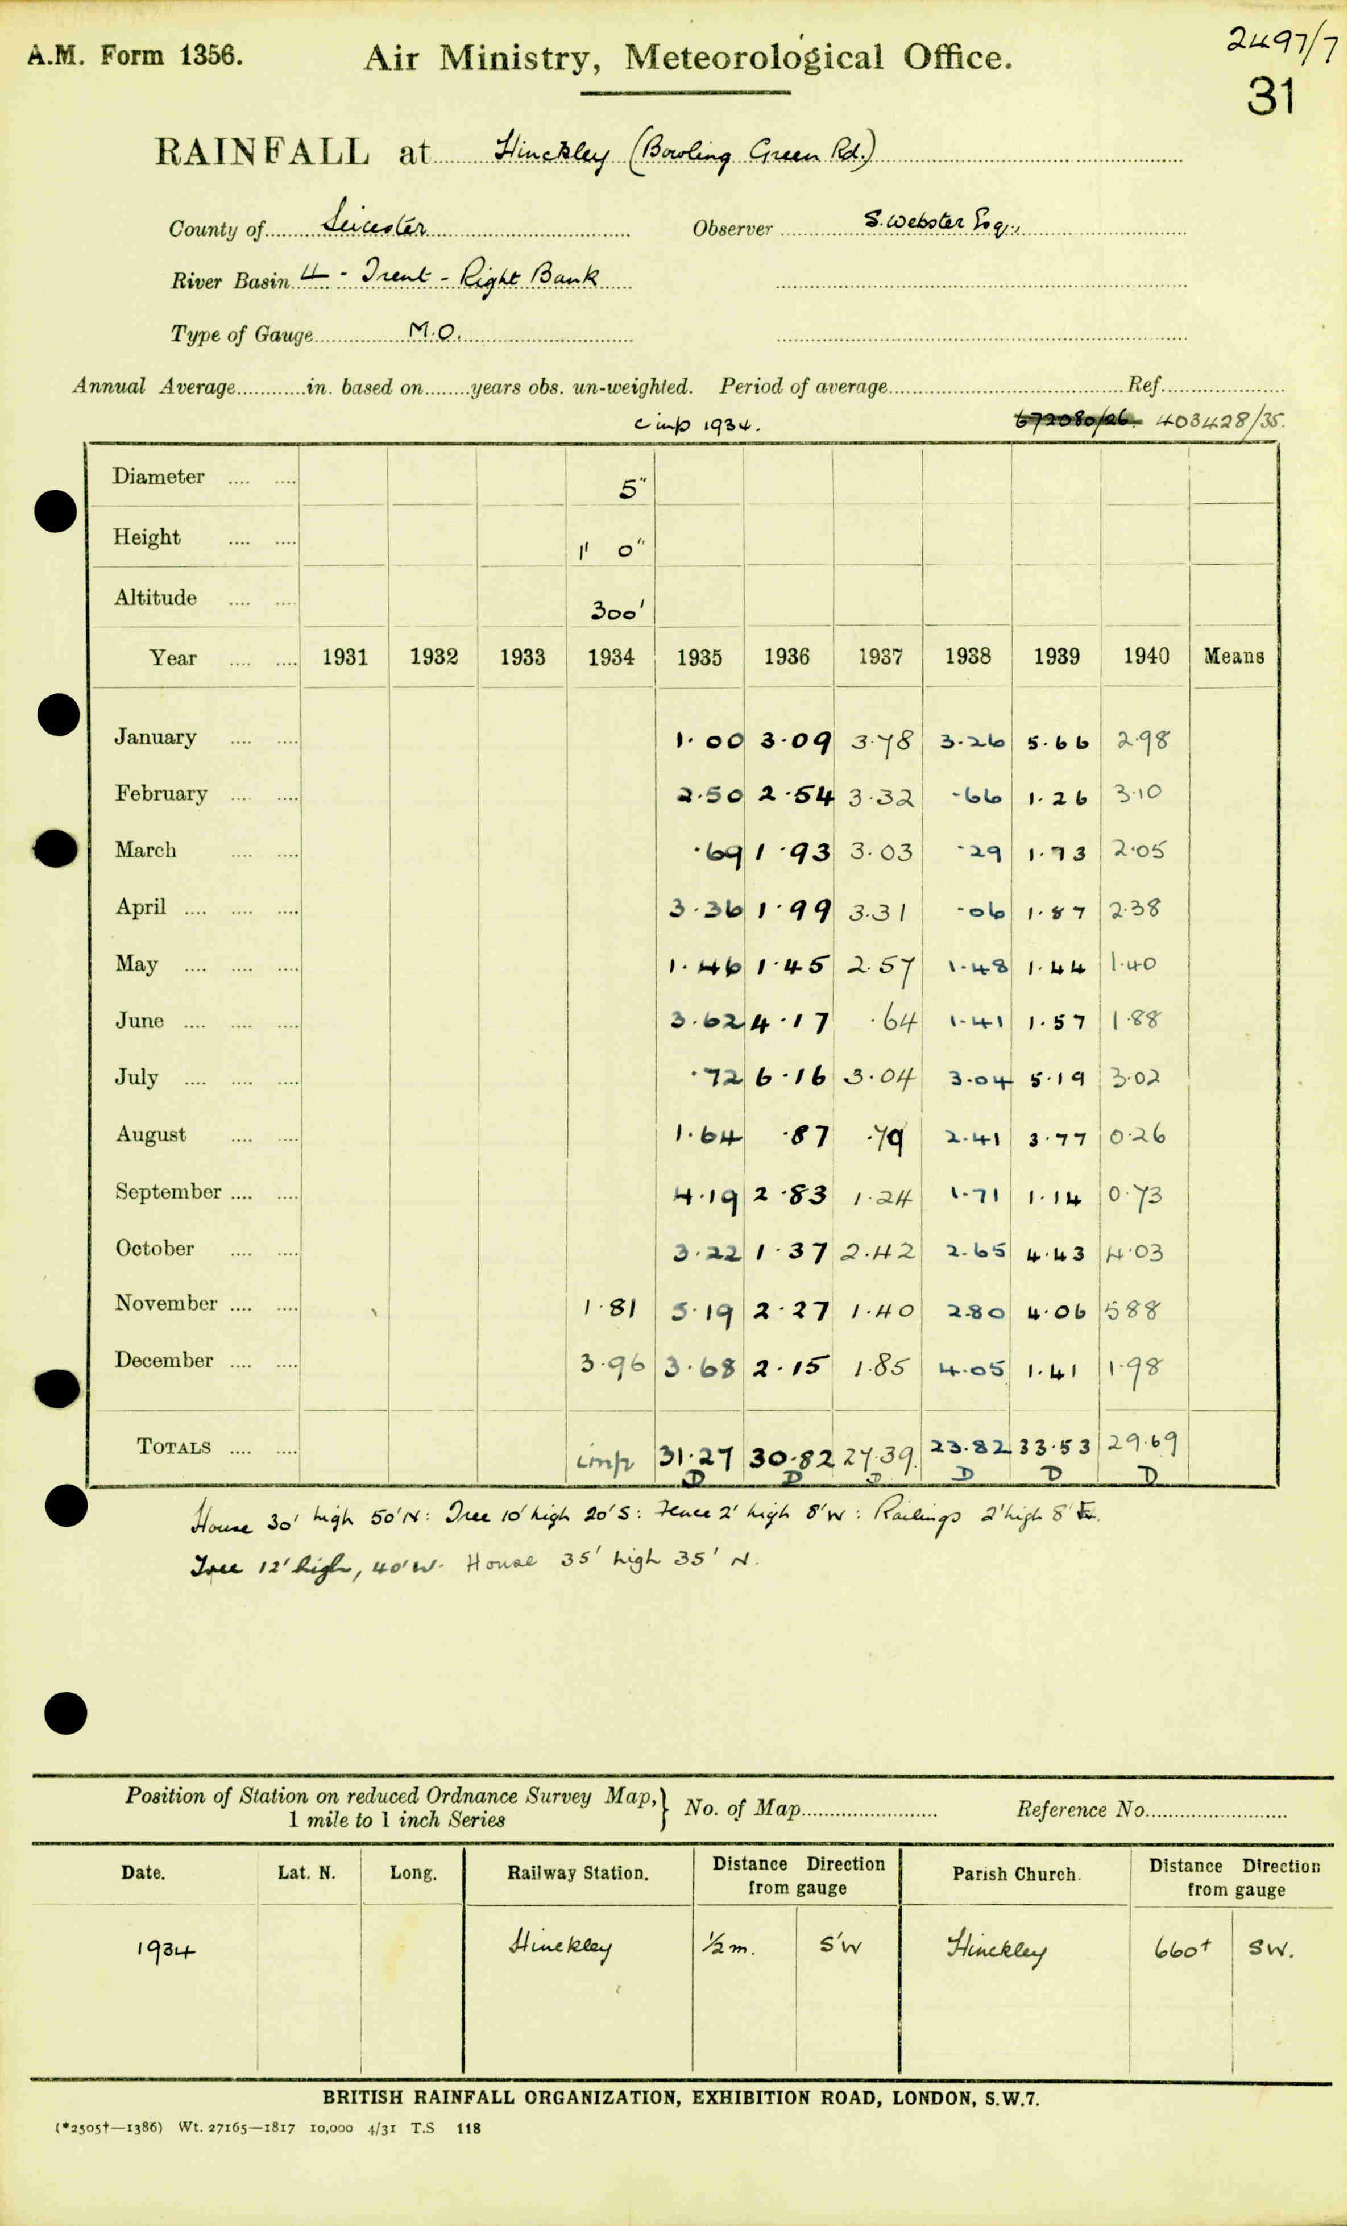 A.M. Form 1356. Air Ministry, Meteorological Office. 2497/7
31
RAINFALL at Hinckley (Bowling Green Rd.)
County of Leicester Observer S. Webster Esq.
River Basin 4 - Trent - Right Bank
Type of Gauge M.O.
Annual Average in. based on years obs. un-weighted. Period of average Ref.
imp 1934. 672080/26 403428/35.
Diameter 5"
Height 1' 0"
Altitude 300'
Year 1931 1932 1933 1934 1935 1936 1937 1938 1939 1940 Means
January 1.00 3.09 3.78 3.26 5.66 2.98
February 2.50 2.54 3.32 .66 1.26 3.10
March .69 1.93 3.03 .29 1.73 2.05
April 3.36 1.99 3.31 .06 1.87 2.38
May 1.46 1.45 2.57 1.48 1.44 1.40
June 3.62 4.17 .64 1.41 1.57 1.88
July .72 6.16 3.04 3.04 5.19 3.02
August 1.64 .87 .79 2.41 3.77 0.26
September 4.19 2.83 1.24 1.71 1.14 0.73
October 3.22 1.37 2.42 2.65 4.43 4.03
November 1.81 5.19 2.27 1.40 2.80 4.06 5.88
December 3.96 3.68 2.15 1.85 4.05 1.41 1.98
TOTALS imp 31.27 30.82 27.39 23.82 33.53 29.69
D D D D D D
House 30' high 50' N: Tree 10' high 20' S: Fence 2' high 8' W: Railings 2' high 8' E.
Tree 12' high, 40' W. House 35' high 35' N.
Position of Station on reduced Ordnance Survey Map, 1 mile to 1 inch Series } No. of Map Reference No.
Date. Lat. N. Long. Railway Station. Distance Direction from gauge Parish Church. Distance Direction from gauge
1934 Hinckley ½ m. S'W Hinckley 660+ SW.
BRITISH RAINFALL ORGANIZATION, EXHIBITION ROAD, LONDON, S.W.7.
(*2505†—1386) Wt. 27165—1817 10,000 4/31 T.S 118